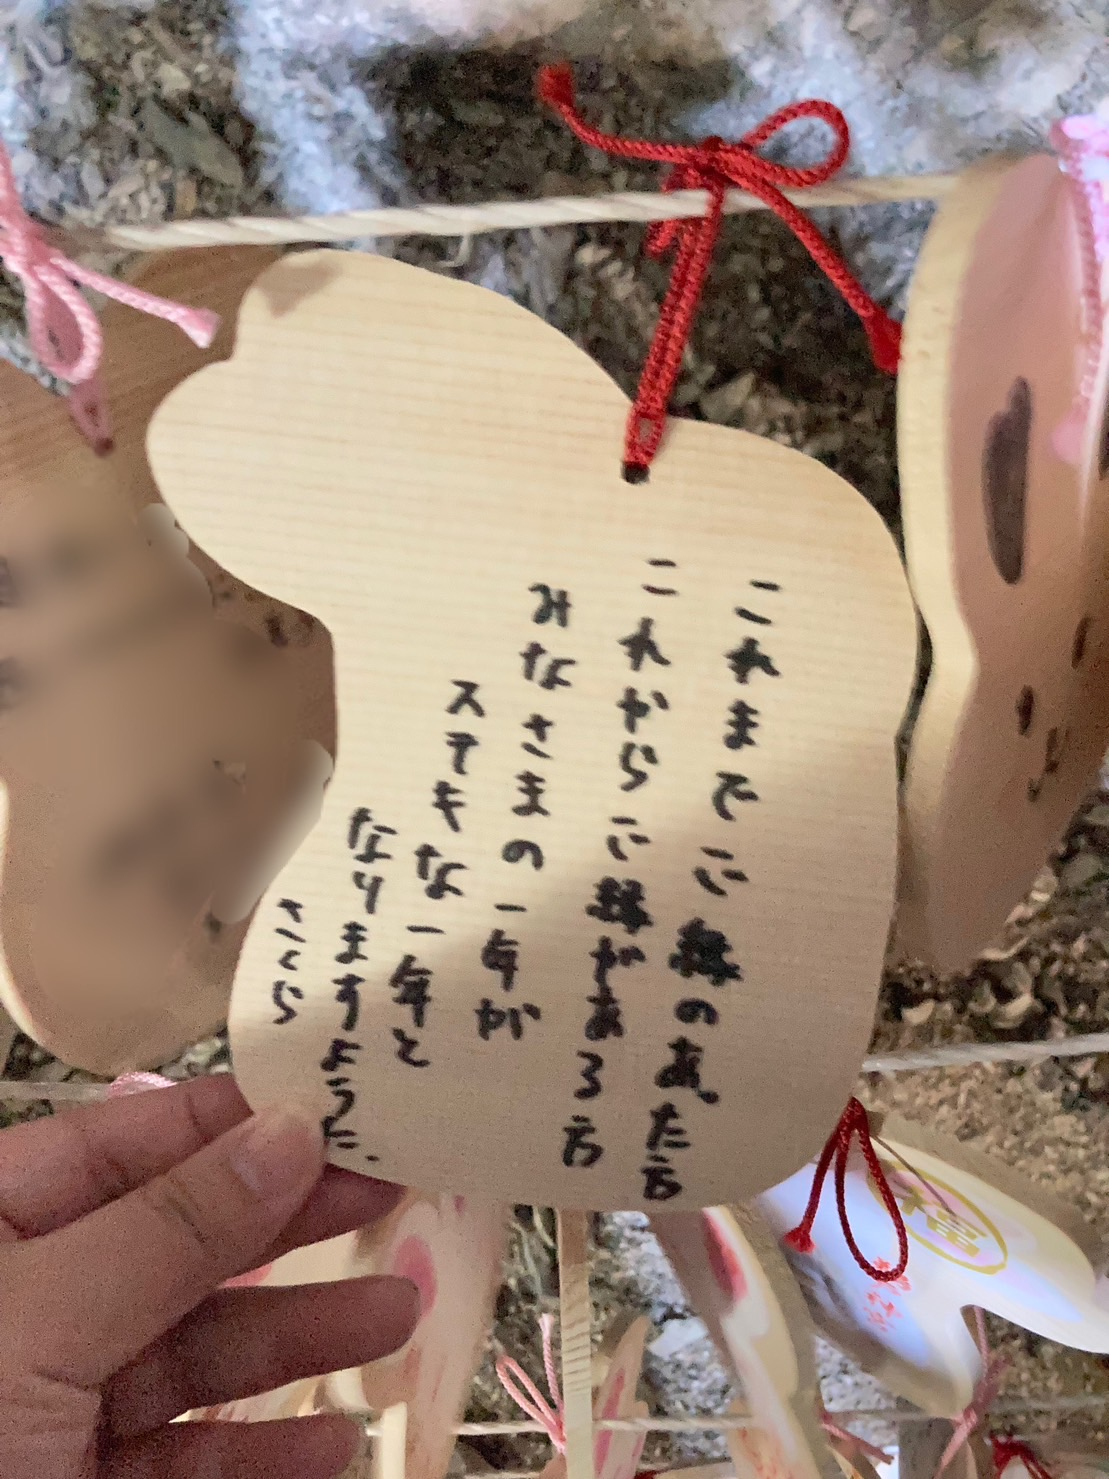 これまでご縁のあった方
これからご縁がある方
みなさまの一年が
ステキな一年と
なりますように。
さくら